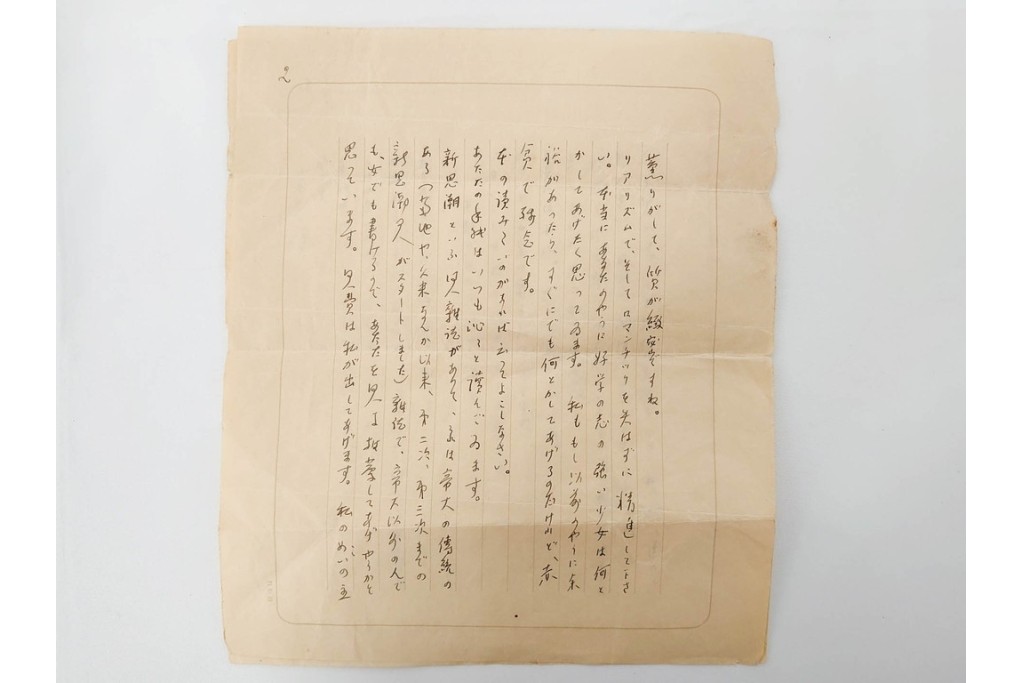 2
薫りがして、質が緻密ですね。
リアリズムで、そしてロマンチックを失はずに精進して下さ
い。本当にあなたのやうに好学の志の強い少女は何と
かしてあげたく思ってゐます。私ももし以前のやうに余
裕があったり、すぐにでも何とかしてあげるのだけれど、赤
貧で残念です。
本の読みたいのがあれば云ってよこしなさい。
あなたの手紙はいつも沁々と読んでゐます。
新思潮といふ同人雑誌があって、之は帝大の傳統の
ある(菊池や、久米なんか以来、第二次、第三次までの
新思潮同人がスタートしました)雑誌で、帝大以外の人で
も、女でも書けるので、あなたを同人に推薦してあげやうかと
思っています。同人費は私が出してあげます。私のめいの主